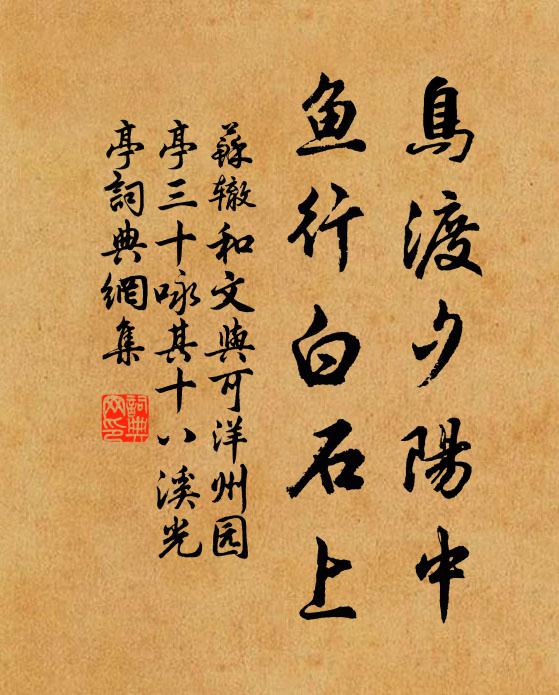 鳥渡夕陽中
魚行白石上
蘇辙和文與可洋州园
亭三十咏其十八溪光
亭詞典網集
詞典
网印